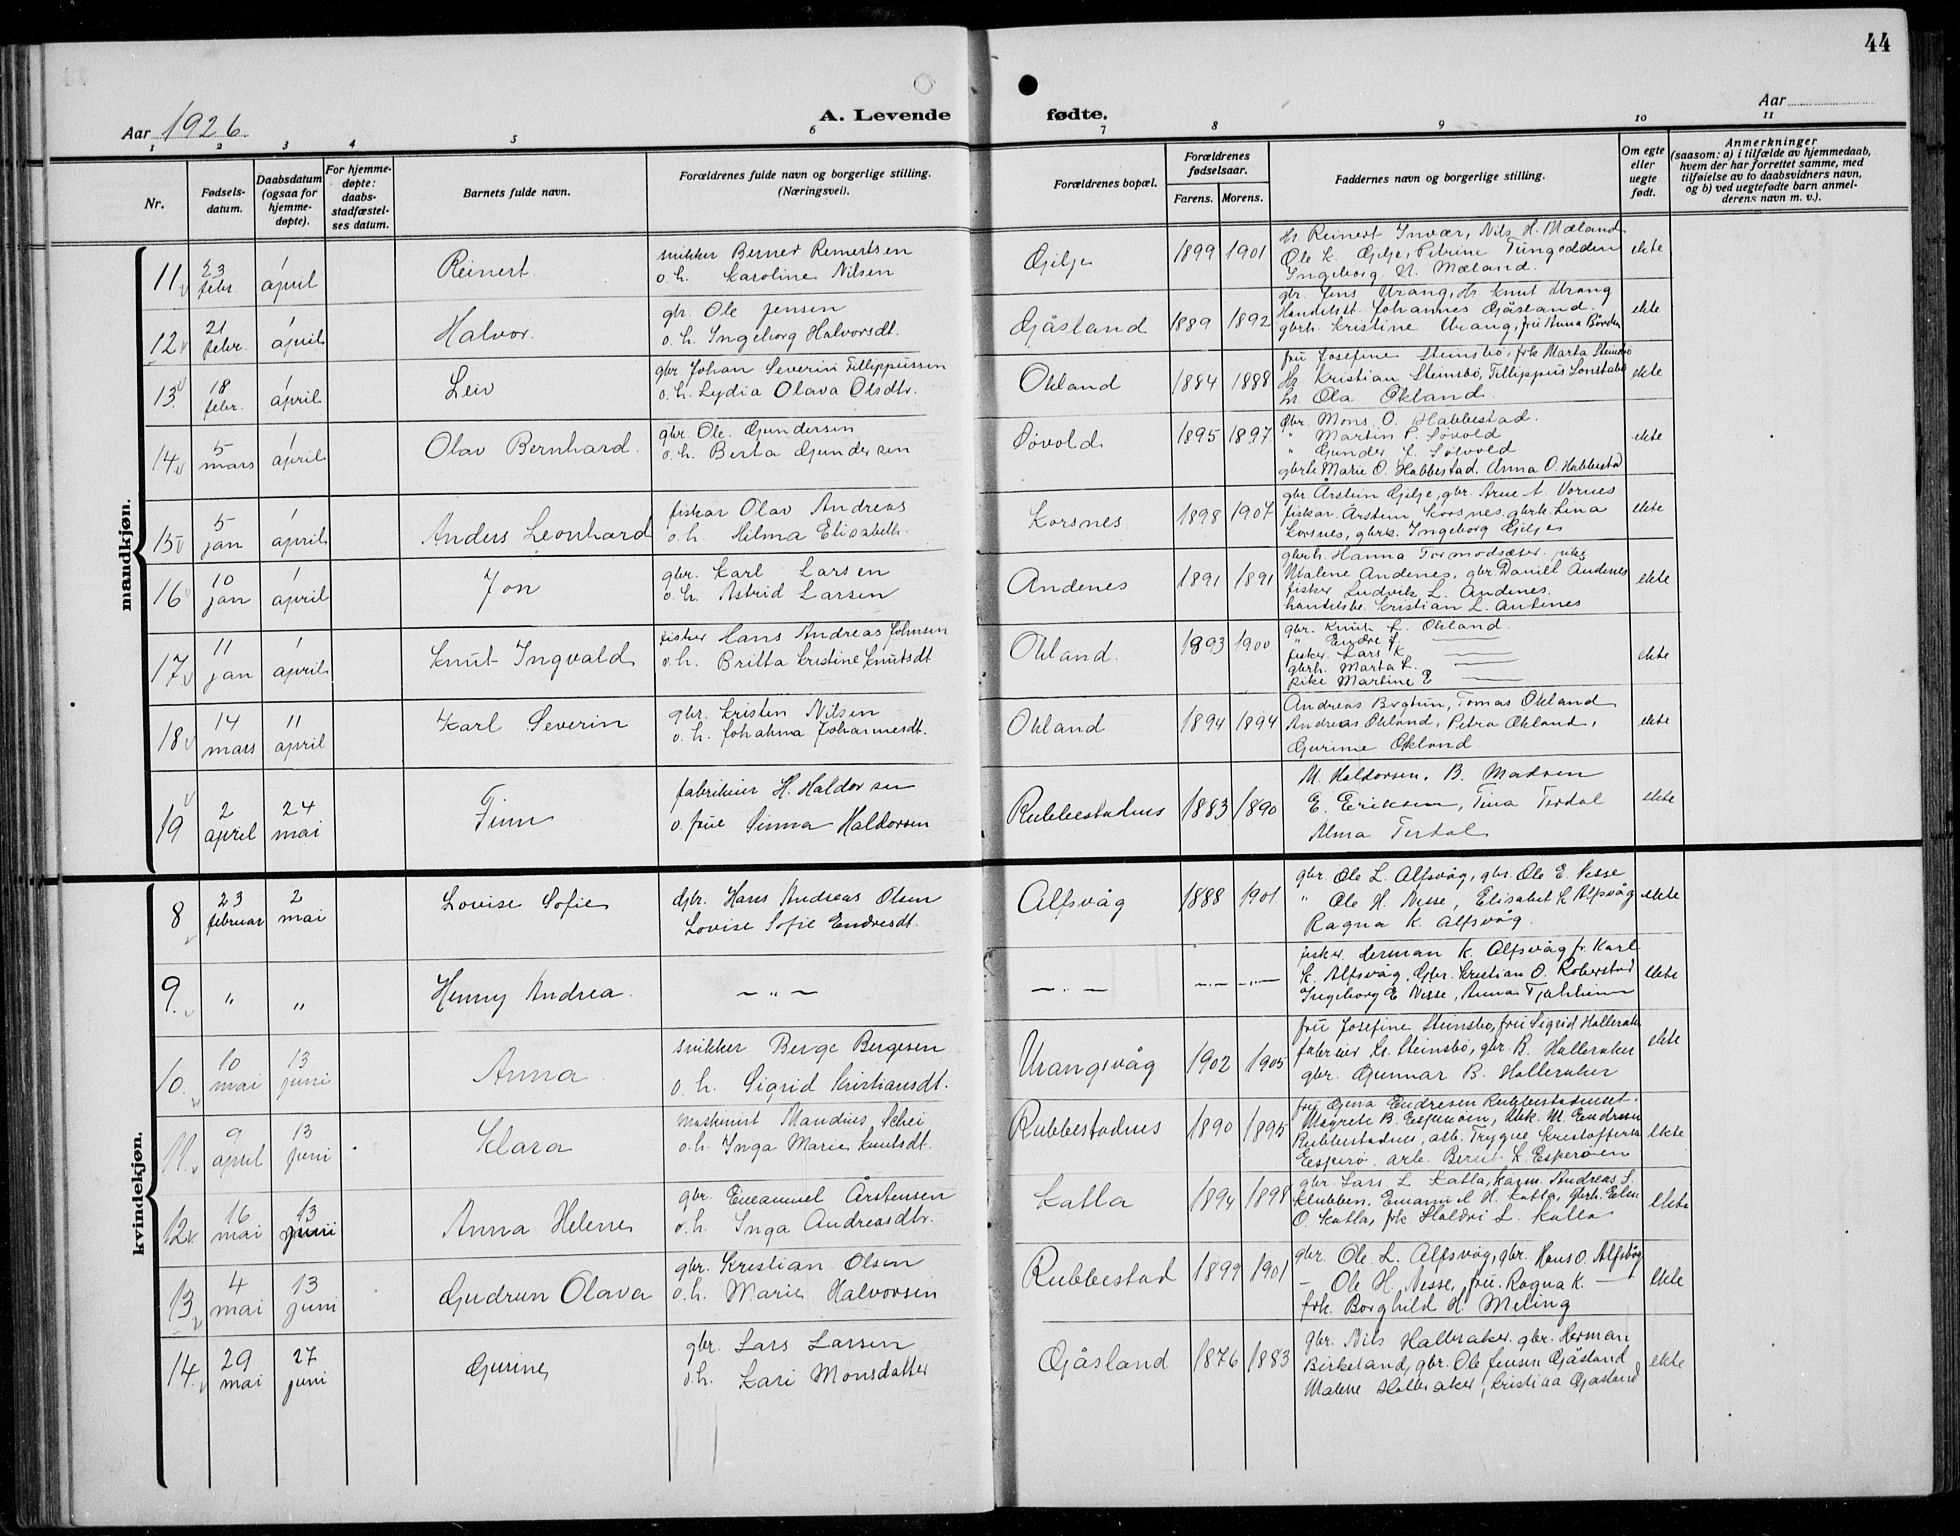 44
Aar 1926.
A. Levende fødte.
Aar
1 2 3 4 5 6 7 8 9 10 11
Nr.
Fødsels-
datum.
Daabsdatum
(ogsaa for
hjemme-
døpte).
For hjemme-
døpte:
daabs-
stadfæstel-
ses datum.
Barnets fulde navn.
Forældrenes fulde navn og borgerlige stilling.
(Næringsvei).
Forældrenes bopæl.
Forældrenes
fødselsaar.
Farens. Morens.
Faddernes navn og borgerlige stilling.
Om egte
eller
uegte
født.
Anmerkninger
(saasom: a) i tilfælde av hjemmedaab,
hvem der har forrettet samme, med
tilføielse av to daabsvidners navn,
og b) ved uegtefødte barn anmel-
derens navn m. v.).
mandkjøn.
11 23 febr. 1 april Reinert.
snikker Berner Reinertsen
o. h. Karoline Nilsen
Gjilje 1899 1901
Hr. Reinert Invær, Nils H. Mæland
Ole K. Gjilje, Petrine Tungodden
Ingeborg N. Mæland.
ekte
12 21 febr. 1 april Halvor.
gbr. Ole Jensen
o. h. Ingeborg Halvorsdt.
Gjåsland 1889 1892
gbr. Jens Urang, Hr. Knut Urang
Handelsst. Johannes Gjåsland.
gbrh. Kristine Urang, fru Anna
ekte
13. 18 febr. 1 april Leiv
gbr. Johan Severin Fillippussen
o. h. Lydia Olava Olsdtr.
Økland 1884 1888
fru Josefine Steinsbø, frk Marta Steinsbø
Hr. Kristian Steinsbø, Fillippus
hr. Ola Økland.
ekte
14 5 mars 1 april Olav Bernhard.
gbr. Ole. Gundersen
o. h. Berta Gundersen
Søvold 1895 1897
Gbr. Mons O. Habbestad.
" Martin P. Søvold
" Gunder L. Søvold
gbrh. Marie O. Habbestad. Anna O. Habbestad
ekte
15 5 jan 1 april Anders Leonhard
fiskar Olav Andreas
o. h. Hilma Elisabeth.
Korsnes. 1898 1907
gbr Årstein Gjilje, gbr. Arne A. Vornes
fiskar Årstein Korsnes, gbrh. Lina
Korsnes, gbrk. Ingeborg Gjilje
ekte
16 10 jan 1 april Jon
gbr. Karl Larsen
o. h. Astrid Larsen
Andenes 1891 1891
gbrh. Hanna Tormodsæter. pike
Malene Andenes, gbr. Daniel Andenes
fisker Ludvik L. Andenes.
handelsbe. Kristian L. Andenes
ekte
17. 11 jan 1 april Knut Ingvald
fisker Hans Andreas Johnsen
o. h. Britta Kristine Knutsdt
Økland. 1893 1900
gbr. Knut L. Økland.
" Endre L. —
fisker. Lars K —
gbrh. Marta L. —
pike Martine E —
ekte
18 14 mars 11 april Karl Severin
gbr. Kristen Nilsen
o. h. Johanna Johannesdt.
Økland 1894 1894
Andreas Bratun, Tomas Økland
Andreas Økland, Petra Økland,
Gurine Økland
ekte
19 2 april 24 mai Finn
fabrikeier H. Haldorsen
o. frue Sinna Haldorsen
Rubbestadnes 1883 1890
M. Haldorsen, B. Madsen
E. Eriksen, Tina Tertal
Alma Tertal
ekte
kvindekjøn.
8 23 februar 2 mai Lovise Sofie
Gbr. Hans Andreas Olsen
Lovise Sofie Endresdt.
Alfsvåg 1888 1901
gbr. Ole L. Alfsvåg, gbr. Ole E. Nesse
" Ole H. Nesse, Elisabet K. Alfsvåg
Ragna K. Alfsvåg.
ekte
9. " " Henny Andrea.
— " —
— " — — " — — " —
fisker Herman K. Alfsvåg fr. Karl
K. Alfsvåg, Gbr. Kristian O. Roberstad
Ingeborg E Nesse, Anna
ekte
10. 10 mai 13 juni Anna
snikker Berge Bergesen
o. h. Sigrid Kristiansdt.
Urangsvåg 1902 1905
fru Josefine Steinsbø, fru Sigrid Halleraker
fabreier Kr. Steinsbø, gbr. B. Halleraker
gbr. Gunnar B. Halleraker
ekte
11. 9 april 13 juni Klara
maskinist Mandius Schei
o. h. Inga Marie Knutsdt.
Rubbestadnes 1890 1895
fru Gina Endresen Rubbestadneset.
Magrete B. Esperøen, M. Endresen
Rubbestadnes, arb. Trygve Kristoffersen
Esperø. arb. Bernt K. Esperøen
ekte
12 16 mai 13 juni Anna Helene
gbr. Emanuel Årstensen
o. h. Inga Andreasdtr.
Katla 1894 1898
gbr. Lars L Katla, Andreas S.
Klubben, Emanuel H. Katla, gbrh. Elen
O. Katla, frk L. Katla
ekte
13 4 mai 13 juni Gudrun Olava
gbr. Kristian Olsen
o. h. Marie Halvorsen
Rubbestad 1899 1901
gbr. Ole. L. Alfsvåg, gbr. Hans O. Alfsvåg
— Ole H. Nesse, fru. Ragna K. —
frk. Borghild H. Meling
ekte
14. 29 mai 27 juni Gurine
gbr. Lars Larsen
o. h. Kari Monsdatter
Gjåsland 1876 1883
gbr. Nils Halleraker. gbr. Herman
Birkeland, gbr. Ole Jensen Gjåsland
Malene Halleraker, Kristiaa Gjåsland
ekte